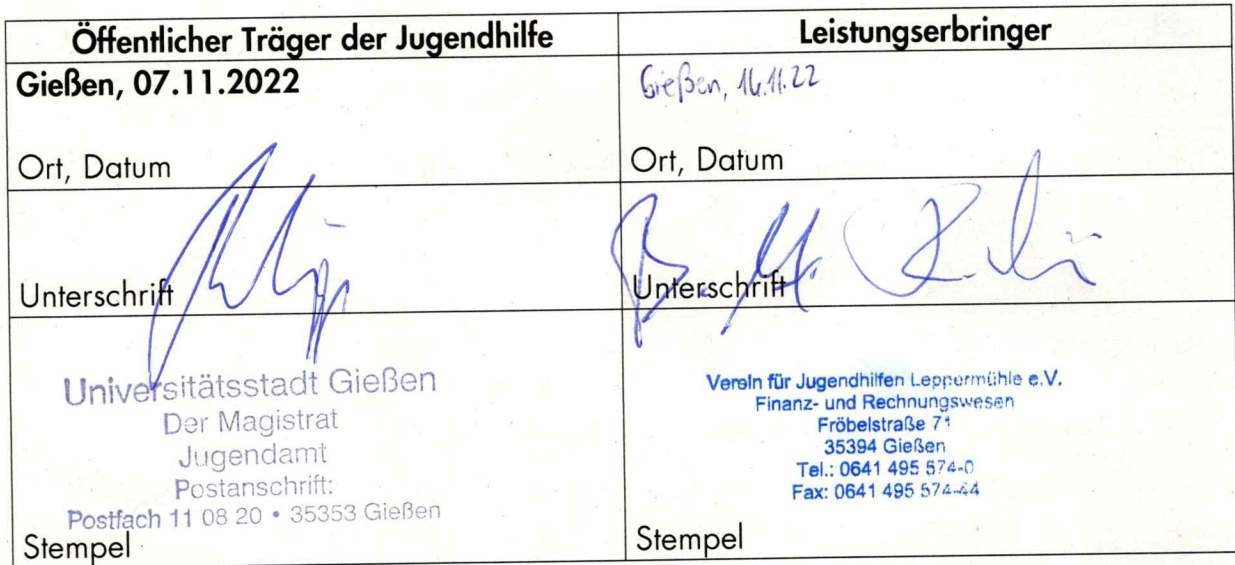 Öffentlicher Träger der Jugendhilfe
Leistungserbringer
Gießen, 07.11.2022
Gießen, 14.11.22
Ort, Datum
Ort, Datum
Unterschrift
Unterschrift
Universitätsstadt Gießen
Der Magistrat
Jugendamt
Postanschrift:
Postfach 11 08 20 • 35353 Gießen
Stempel
Verein für Jugendhilfen Leppermühle e.V.
Finanz- und Rechnungswesen
Fröbelstraße 71
35394 Gießen
Tel.: 0641 495 574-0
Fax: 0641 495 574-44
Stempel